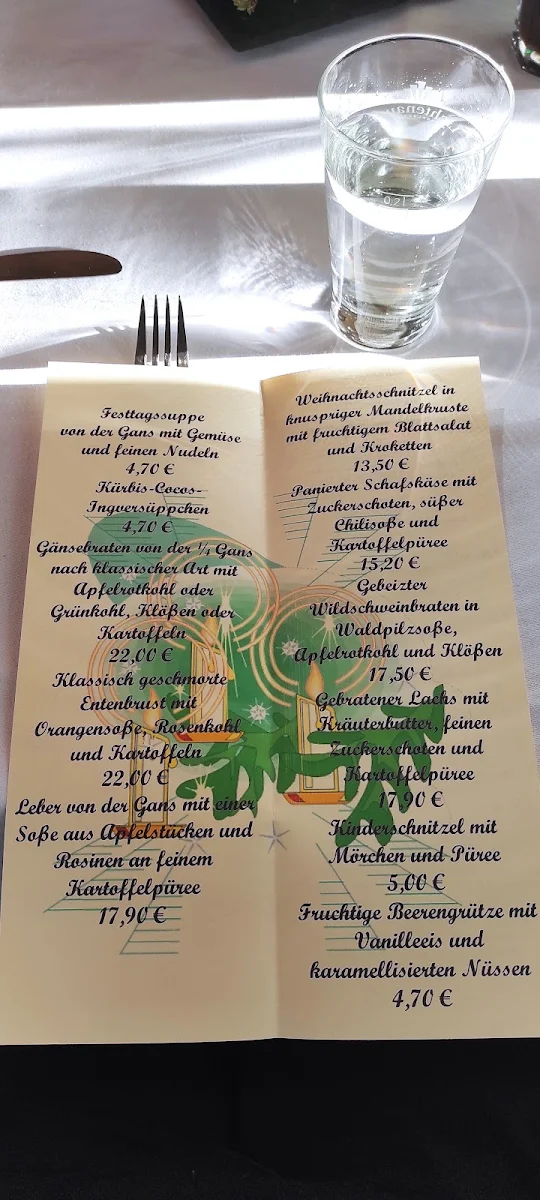 0,2l
Festtagssuppe
von der Gans mit Gemüse
und feinen Nudeln
4,70 €
Kürbis-Cocos-
Ingwersüppchen
4,70 €
Gänsebraten von der ¼ Gans
nach klassischer Art mit
Apfelrotkohl oder
Grünkohl, Klößen oder
Kartoffeln
22,00 €
Klassisch geschmorte
Entenbrust mit
Orangensoße, Rosenkohl
und Kartoffeln
22,00 €
Leber von der Gans mit einer
Soße aus Apfelstücken und
Rosinen an feinem
Kartoffelpüree
17,90 €
Weihnachtsschnitzel in
knuspriger Mandelkruste
mit fruchtigem Blattsalat
und Kroketten
13,50 €
Panierter Schafskäse mit
Zuckerschoten, süßer
Chilisoße und
Kartoffelpüree
15,20 €
Gebeizter
Wildschweinbraten in
Waldpilzsoße,
Apfelrotkohl und Klößen
17,50 €
Gebratener Lachs mit
Kräuterbutter, feinen
Zuckerschoten und
Kartoffelpüree
17,90 €
Kinderschnitzel mit
Mörchen und Püree
5,00 €
Fruchtige Beerengrütze mit
Vanilleeis und
karamellisierten Nüssen
4,70 €